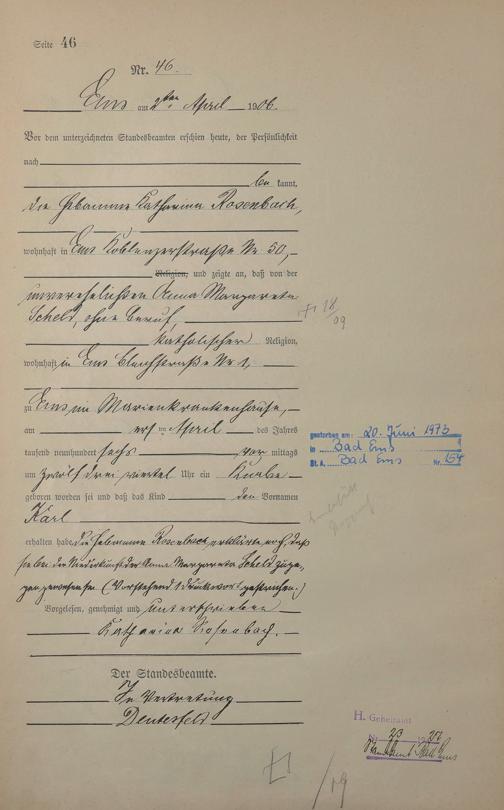 Seite 46
Nr. 46.
Ems am 2ten April 1906.
Vor dem unterzeichneten Standesbeamten erschien heute, der Persönlichkeit
nach
be kannt,
die Hebamme Katharina Rosenbach,
wohnhaft in Ems Koblenzerstraße Nr. 50,
Religion, und zeigte an, daß von der
unverehelichten Anna Margareta
Scheld, ohne Beruf,
katholischer Religion,
wohnhaft in Ems Bleichstraße Nr. 1,
zu Ems im Marienkrankenhause,
am ersten April des Jahres
tausend neunhundert sechs vor mittags
um zwölf drei viertel Uhr ein Knabe
geboren worden sei und daß das Kind den Vornamen
Karl
erhalten habe. Die Hebamme Rosenbach erklärte noch, daß
sie bei der Niederkunft der Anna Margareta Scheld zuge-
gen gewesen sei. (Vorstehend 1 Druckwort gestrichen.)
Vorgelesen, genehmigt und unterschrieben
Katharina Rosenbach.
Der Standesbeamte.
In Vertretung
Deutesfeld
gestorben am: 20. Juni 1973
in Bad Ems
St. A. Bad Ems Nr. 154
H. Geheiratet
Nr. 23
Standesamt Bad Ems